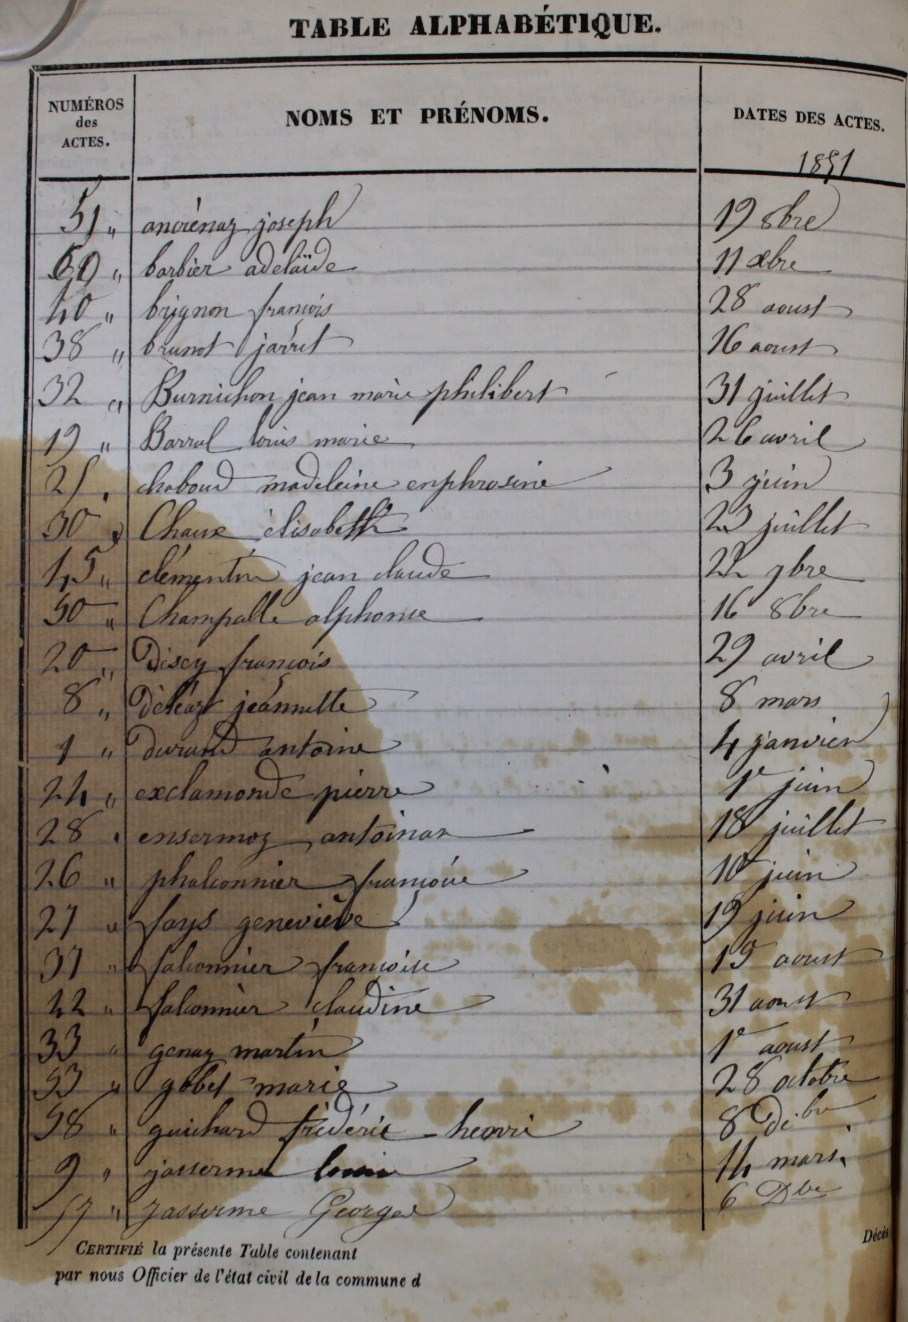 TABLE ALPHABÉTIQUE.
NUMÉROS des ACTES. NOMS ET PRÉNOMS. DATES DES ACTES.
1851
51 " anciénaz joseph 19 8bre
60 " barbier adelaïde 11 xbre
40 " brignon françois 28 aoust
38 " brunot jarret 16 aoust
32 " Burnichon jean marie philibert 31 juillet
19 " Barral louis marie 26 avril
25 " chaboud madeleine euphrosine 3 juin
30 " Chaux élisabeth 23 juillet
45 " clémentin jean claude 22 7bre
50 " Champalle alphonse 16 8bre
20 " Discy françois 29 avril
8 " déléaz jeannette 8 mars
1 " durand antoine 4 janvier
24 " exclamonde pierre 1e juin
28 " ensermoz 18 juillet
26 " phalconnier françoise 10 juin
27 " fays geneviève 19 juin
37 " falconnier françoise 15 aoust
42 " falconnier claudine 31 aoust
33 " genaz martin 1e aoust
53 " gobet marie 28 octobre
58 " guichard frédéric - henri 8
9 " jasserme louis 14 mars
57 " Jasserme George 6 Dbre
CERTIFIÉ la présente Table contenant Décès
par nous Officier de l'état civil de la commune d